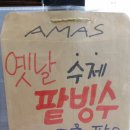 AMAS
옛날 수제
팥빙수